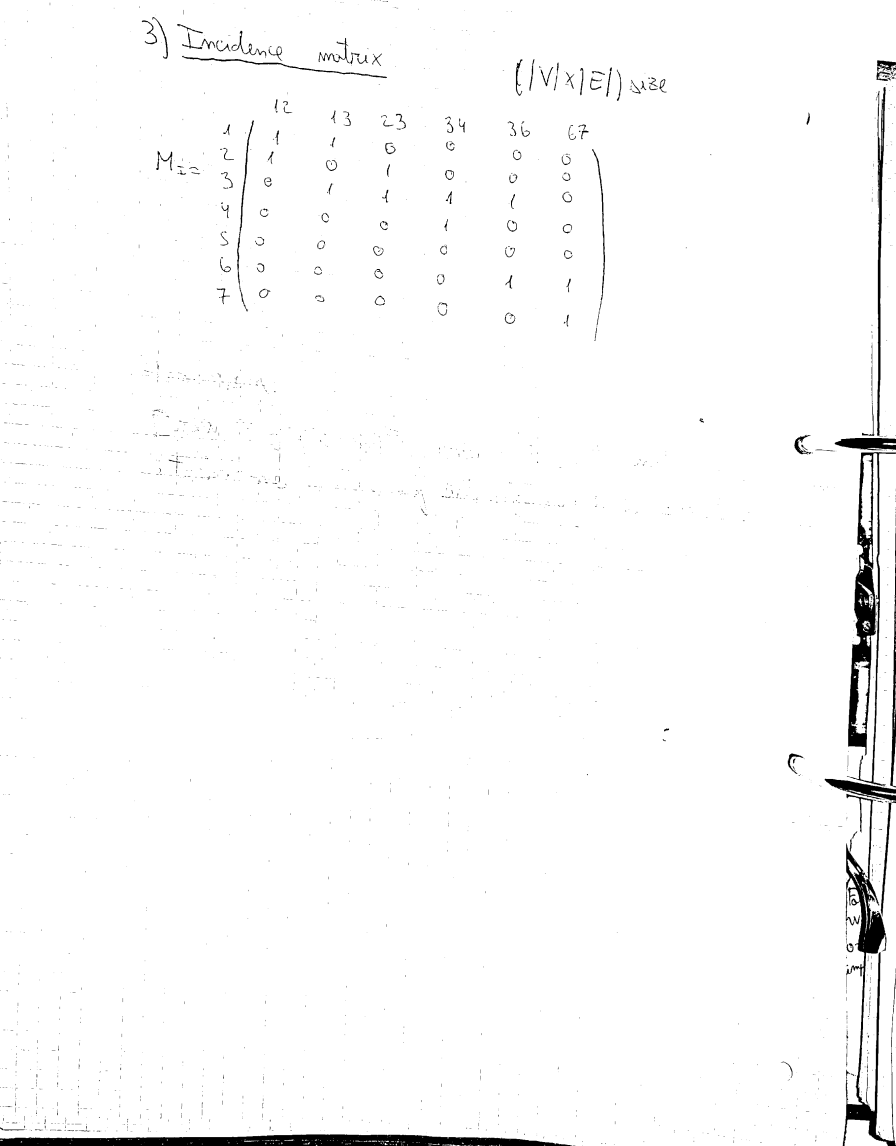 3) Incidence matrix (|V|x|E|) size
12 13 23 34 36 67
1 1 1 0 0 0 0
Mi= 2 1 0 1 0 0 0
3 0 1 1 1 1 0
4 0 0 0 1 0 0
5 0 0 0 0 0 0
6 0 0 0 0 1 1
7 0 0 0 0 0 1